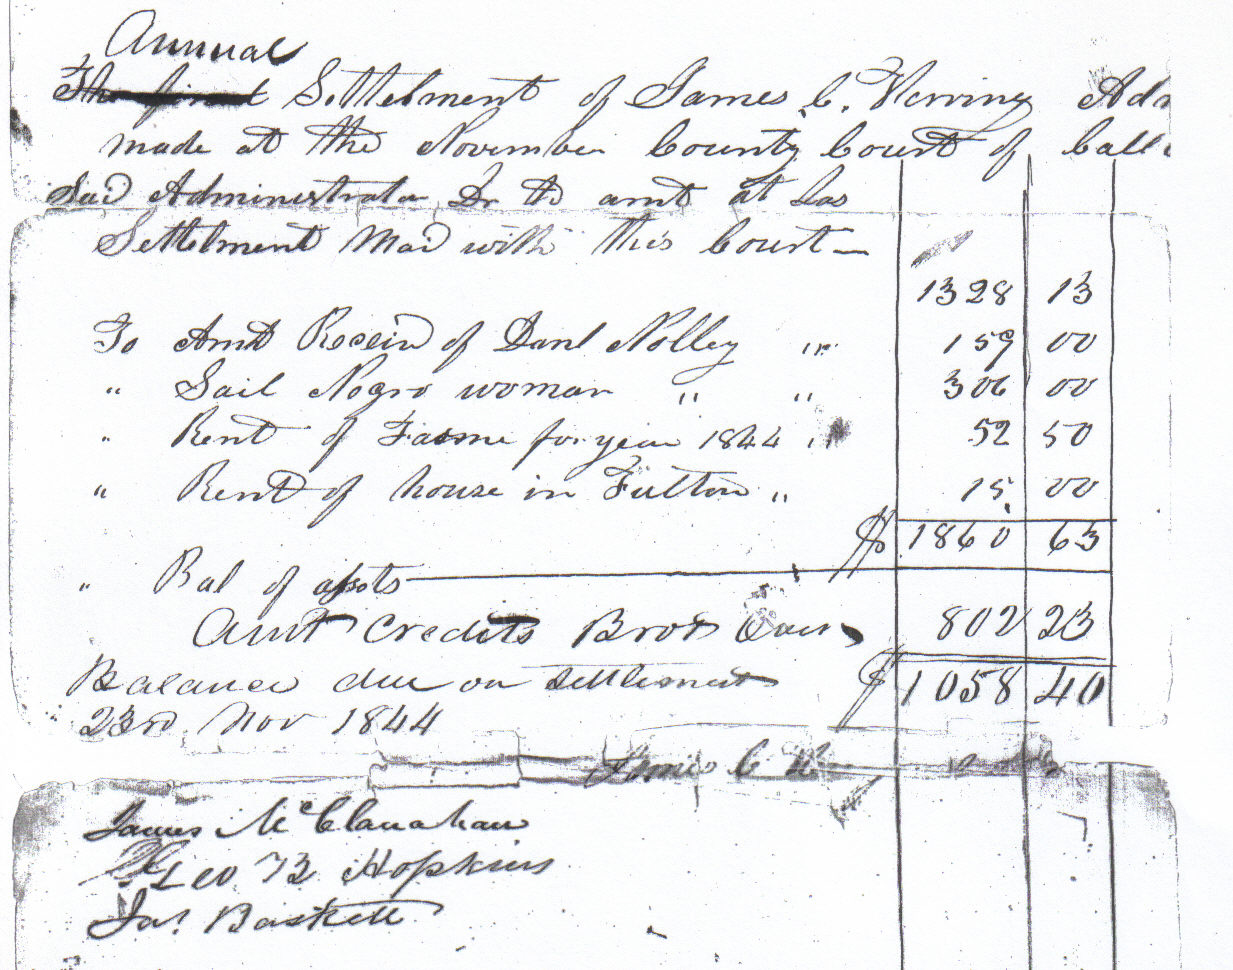 Annual
The final Settelment of James C. Herring Adm
made at the November County Court of Call
Said Administrator Dr to amt at Las
Settelment Maid with this Court —
1328 13
To Amt Receivd of Danl Nolley " " 159 00
" Sail Negro woman " " 306 00
" Rent of Farme for year 1844 " 52 50
" Rent of house in Fulton " 15 00
$ 1860 63
" Bal of assets
Amt Credits Brot Over 802 23
Balance due on settlement $ 1058 40
23rd Nov 1844
James C H
James McClanahan
Geo B Hopkins
Jas Baskett